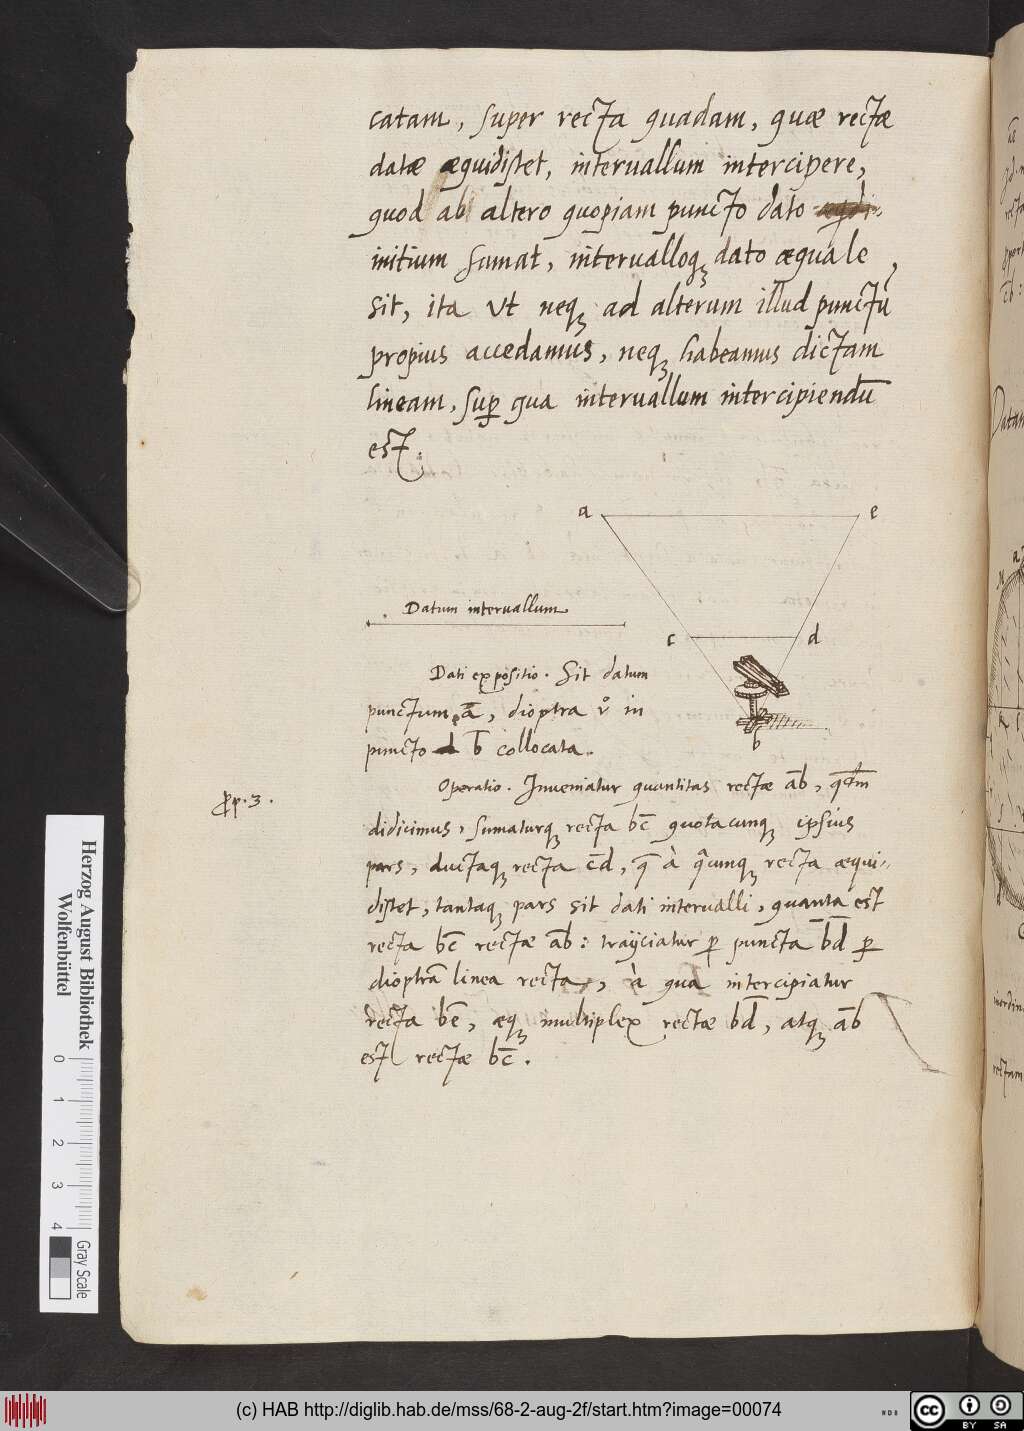 catam, super recta quadam, quæ rectæ
datæ æquidistet, interuallum intercipere,
quod ab altero quopiam puncto dato
initium sumat, interualloqꝫ dato æquale
sit, ita vt neqꝫ ad alterum illud punctū
propius accedamus, neqꝫ habeamus dictam
lineam, suꝑ qua interuallum intercipiendū
est.
a e
Datum interuallum
c d
Dati expositio. Sit datum
punctum ā, dioptra v° in
puncto b̄ collocata.
b
Operatio. Inueniatur quantitas rectæ āb,
ꝓp. 3.
didicimus, sumaturqꝫ recta bc̄ quotacunqꝫ ipsius
pars, ductaqꝫ recta c̄d, à recta æqui-
distet, tantaqꝫ pars sit dati interualli, quanta est
recta bc̄ rectæ āb: traijciatur ꝑ puncta b̄d̄ ꝑ
dioptrā linea recta, à qua intercipiatur
recta bē, æqꝫ multiplex rectæ bd̄, atqꝫ āb
est rectæ bc̄.
Datam
rectam
Herzog August Bibliothek
Wolfenbüttel
0 1 2 3 4
Gray Scale
(c) HAB http://diglib.hab.de/mss/68-2-aug-2f/start.htm?image=00074
HAB
cc BY SA